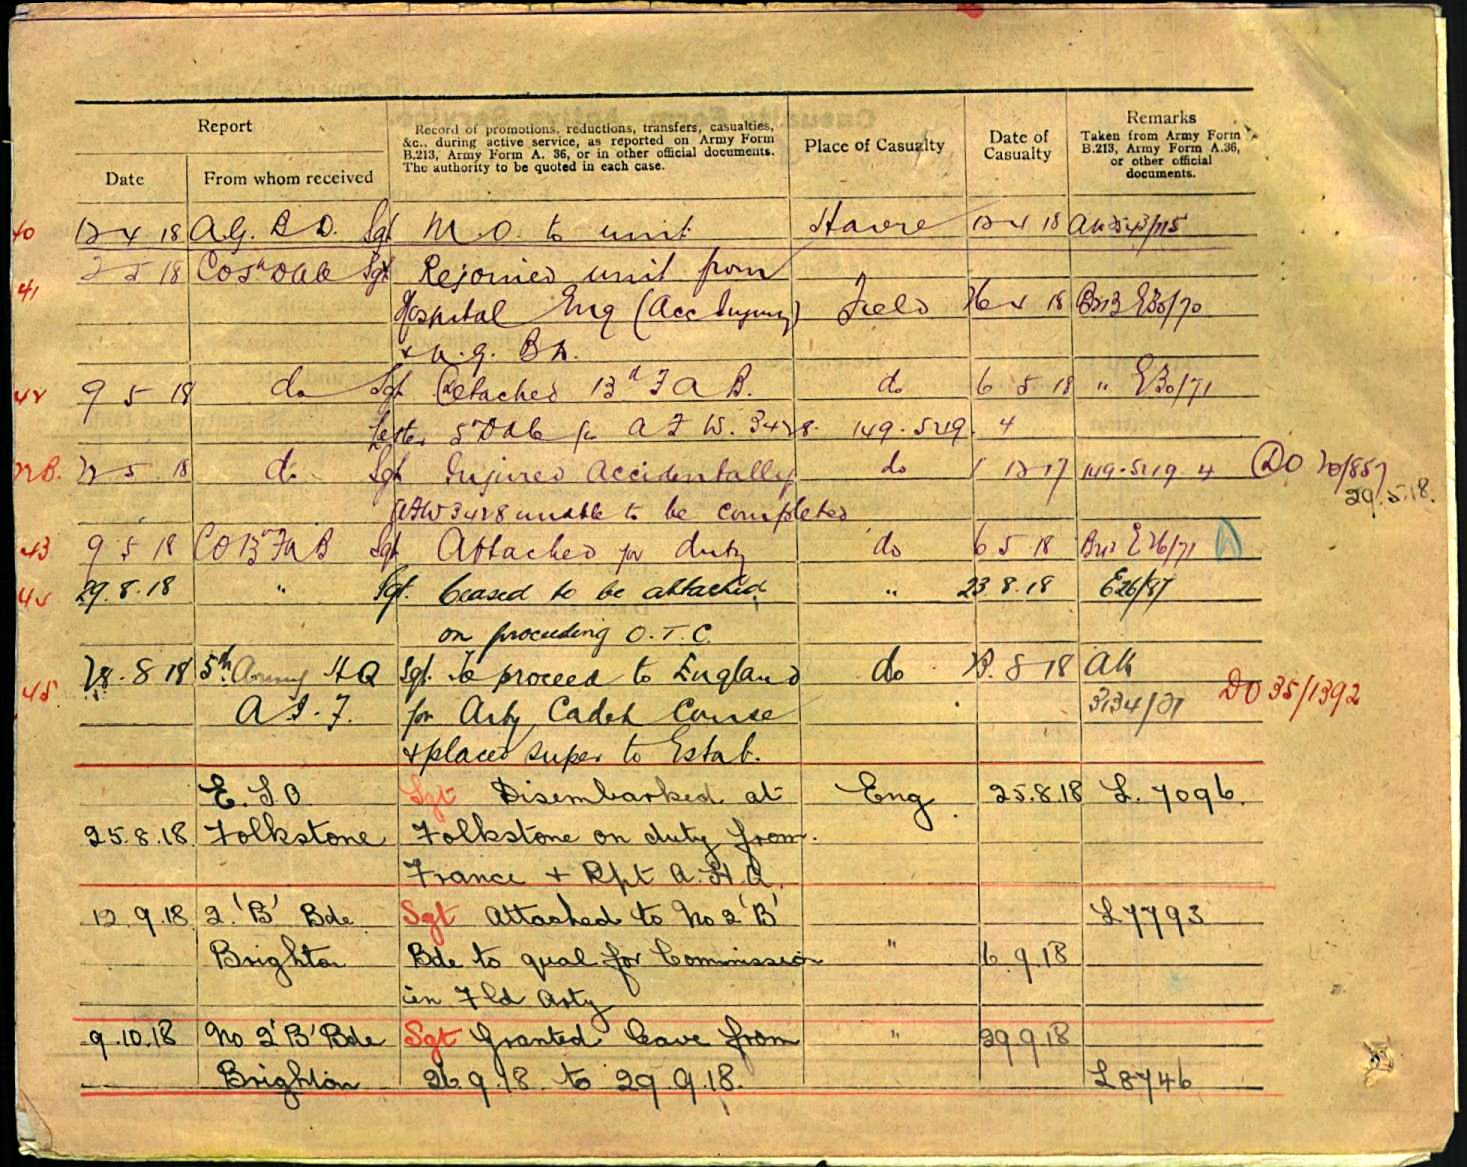 Report
Record of promotions, reductions, transfers, casualties,
&c., during active service, as reported on Army Form
B.213, Army Form A. 36, or in other official documents.
The authority to be quoted in each case.
Place of Casualty
Date of
Casualty
Remarks
Taken from Army Form
B.213, Army Form A.36,
or other official
documents.
Date
From whom received
40 12 4 18 A.G. B D. Sgt M.O. to unit Havre 12 4 18
41 2 5 18 Sgt Rejoined unit from
Hospital Eng (Acc Injury) Field 26 4 18 E30/70
9 5 18 do Sgt Detached 13th F A B. do 6 5 18 " E30/71
149.5219.4
5 18 do Sgt Injured Accidentally do 1 12 17 149.5219.4 DO 70/857
29.5.18.
AFW3428 unable to be completed
43 9 5 18 CO 13th FAB Sgt Attached for duty do 6 5 18 E26/71
44 29.8.18 " Sgt. Ceased to be attached " 23 8.18 E26/87
on proceeding O.T.C.
45 28.8 18 5th Army HQ Sgt. To proceed to England do 8 18 AK
A.I.F. for Arty Cadet Course 3134/21 DO 35/1392
& placed super to Estab.
E.S.O. Sgt Disembarked at Eng. 25.8.18 L.7096.
25.8.18. Folkstone Folkstone on duty from
France & Rpt A.H.Q.
12.9.18 2.'B' Bde Sgt Attached to No 2 'B' L7793
Brighton Bde to qual for Commission " 6.9.18
in Fld Arty
9.10.18 No 2'B'Bde Sgt Granted leave from " 29 9 18
Brighton 26 9.18 to 29.9.18. L8746